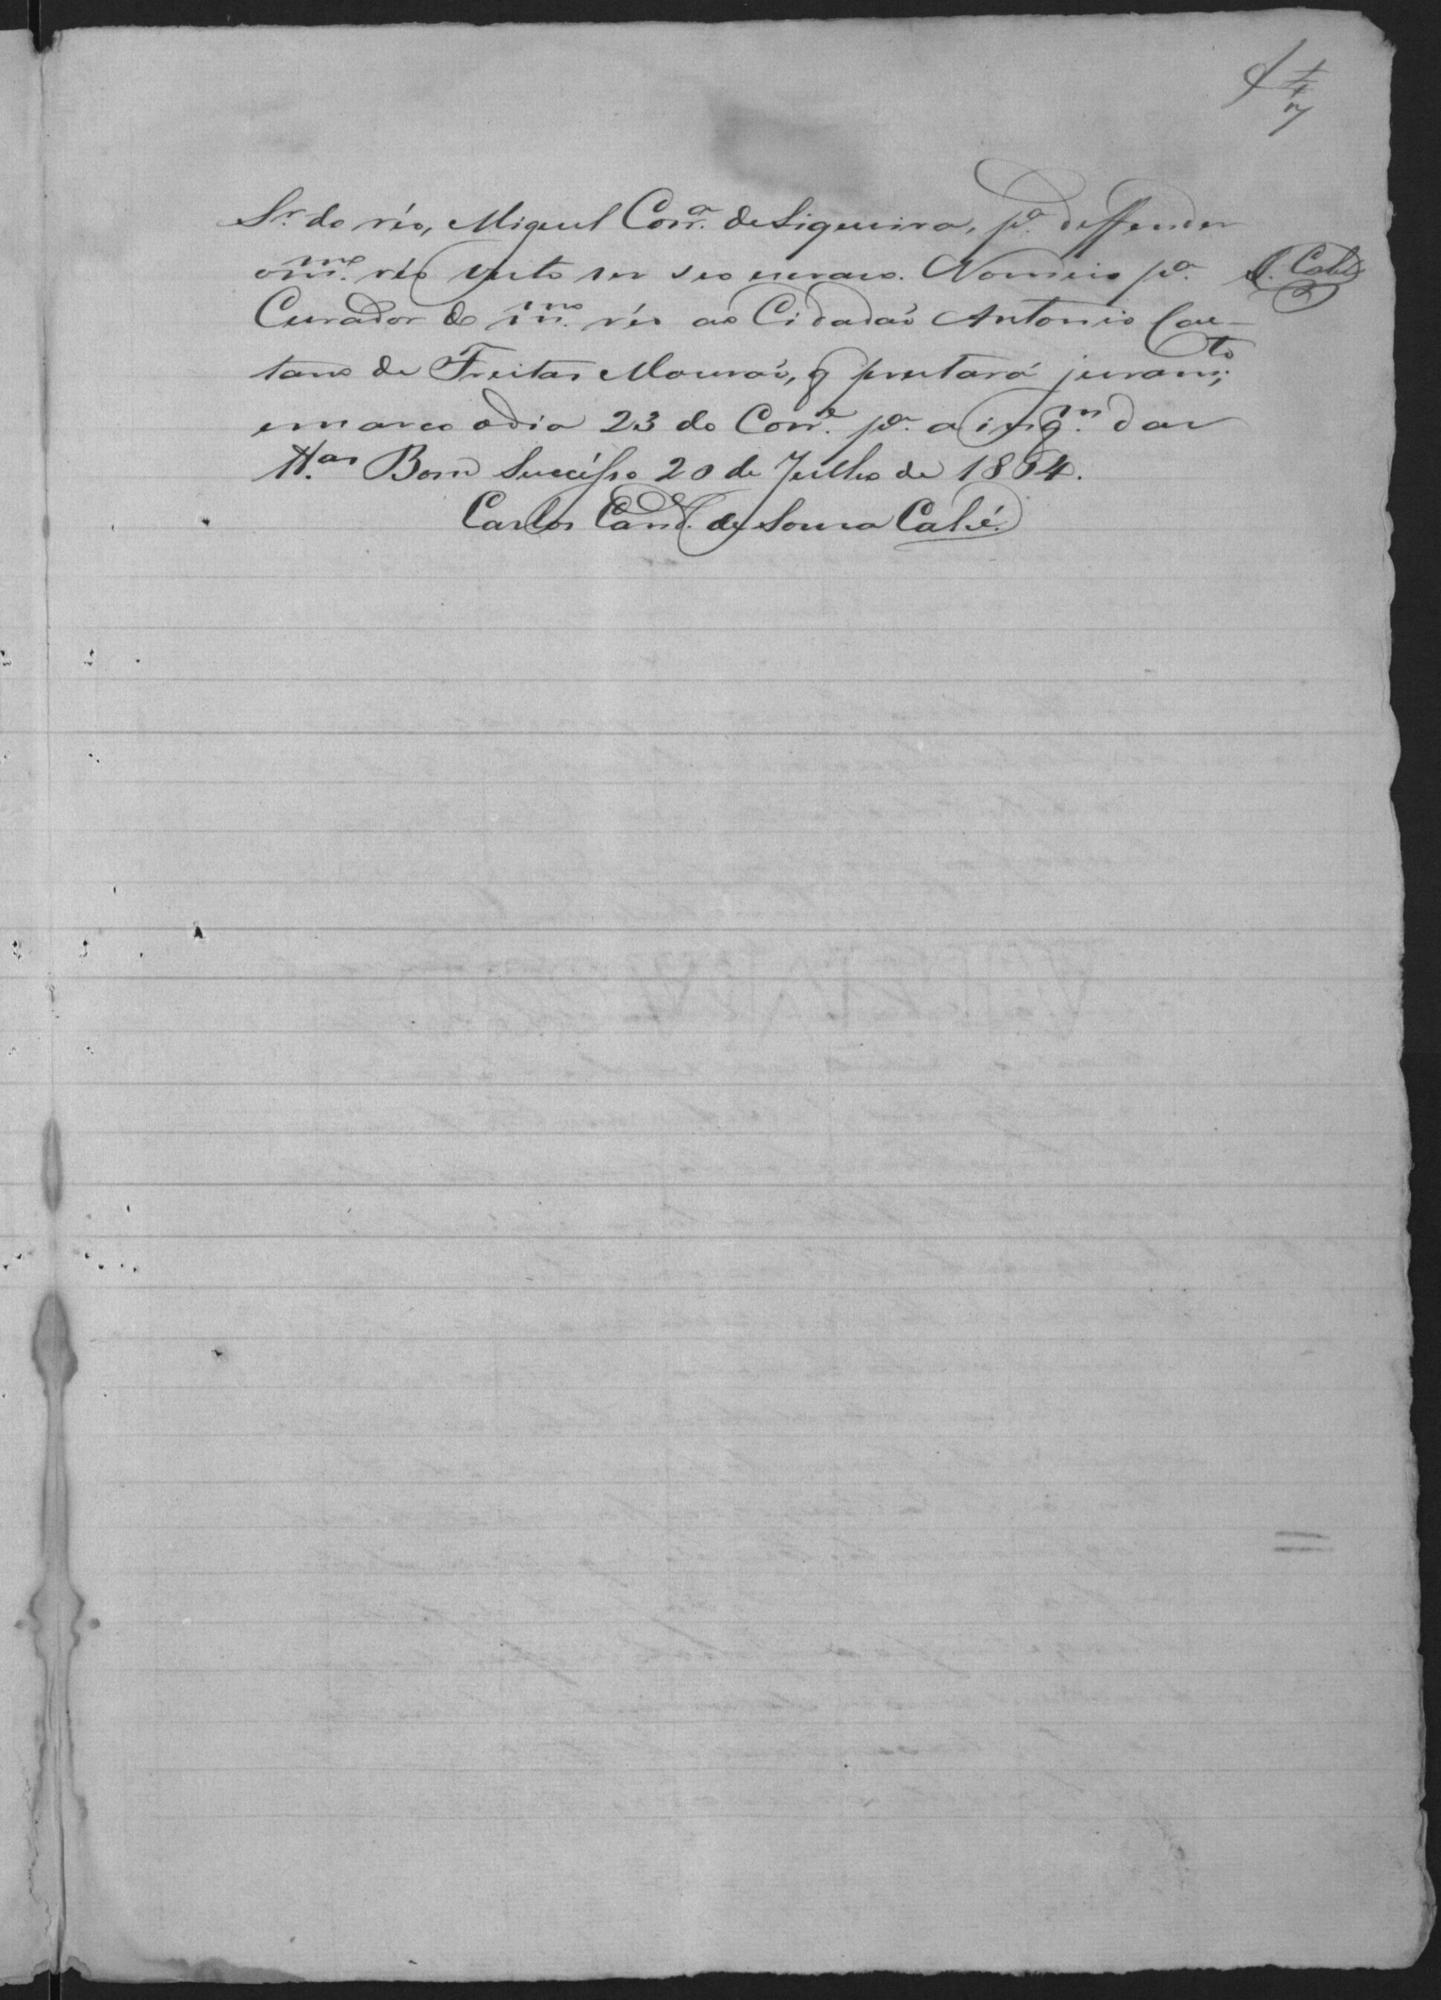 7
Sr. do réo, Miguel Corra. de Siqueira, pa. deffender
o mmo. réo visto ser seo escravo. Nomeio pa. S. Cahé
Curador do mmo. réo ao Cidadaõ Antonio Cae-
tano de Freitas Mouraõ, q prestará juramto;
e marco o dia 23 do Corre. pa. a inqm. das
ttas Bom Successo 20 de Julho de 1864.
Carlos Cand. de Souza Cahé.